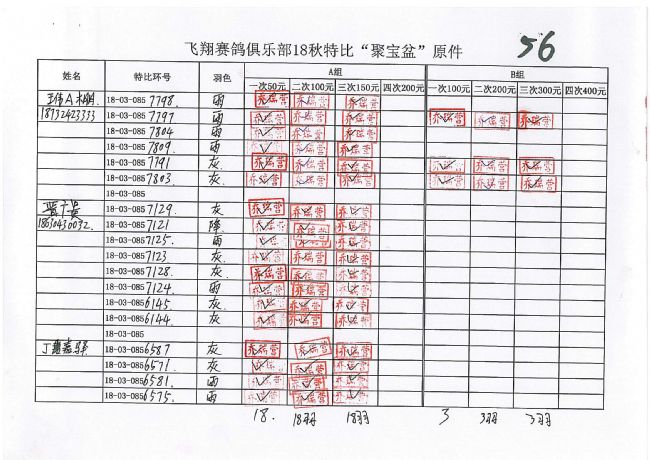 飞翔赛鸽俱乐部18秋特比“聚宝盆”原件 56
姓名 特比环号 羽色 A组 B组
一次50元 二次100元 三次150元 四次200元 一次100元 二次200元 三次300元 四次400元
18-03-0857798. 雨 乔瑞营 乔瑞营 乔瑞营
18732423333 18-03-0857797 雨 乔瑞营 乔瑞营 乔瑞营 乔瑞营 乔瑞营 乔瑞营
18-03-0857804 雨 乔瑞营 乔瑞营 乔瑞营
18-03-0857809. 雨 乔瑞营 乔瑞营
18-03-0857791 灰 乔瑞营 乔瑞营 乔瑞营 乔瑞营 乔瑞营 乔瑞营
18-03-0857803 灰 乔瑞营 乔瑞营 乔瑞营 乔瑞营 乔瑞营 乔瑞营
18-03-085
18-03-0857129. 灰 乔瑞营 乔瑞营 乔瑞营
18630430032. 18-03-0857121 乔瑞营 乔瑞营 乔瑞营
18-03-0857125. 雨 乔瑞营 乔瑞营 乔瑞营
18-03-0857123 灰 乔瑞营 乔瑞营 乔瑞营
18-03-0857128. 灰 乔瑞营 乔瑞营 乔瑞营
18-03-0857124 雨 乔瑞营 乔瑞营 乔瑞营
18-03-0856145 灰 乔瑞营 乔瑞营 乔瑞营
18-03-0856144 灰 乔瑞营 乔瑞营 乔瑞营
18-03-085
18-03-0856587 灰 乔瑞营 乔瑞营 乔瑞营
18-03-0856571. 灰 乔瑞营 乔瑞营 乔瑞营
18-03-0856581. 雨 乔瑞营 乔瑞营 乔瑞营
18-03-0856575. 雨 乔瑞营 乔瑞营 乔瑞营
18. 18羽 18羽 3 3羽 3羽